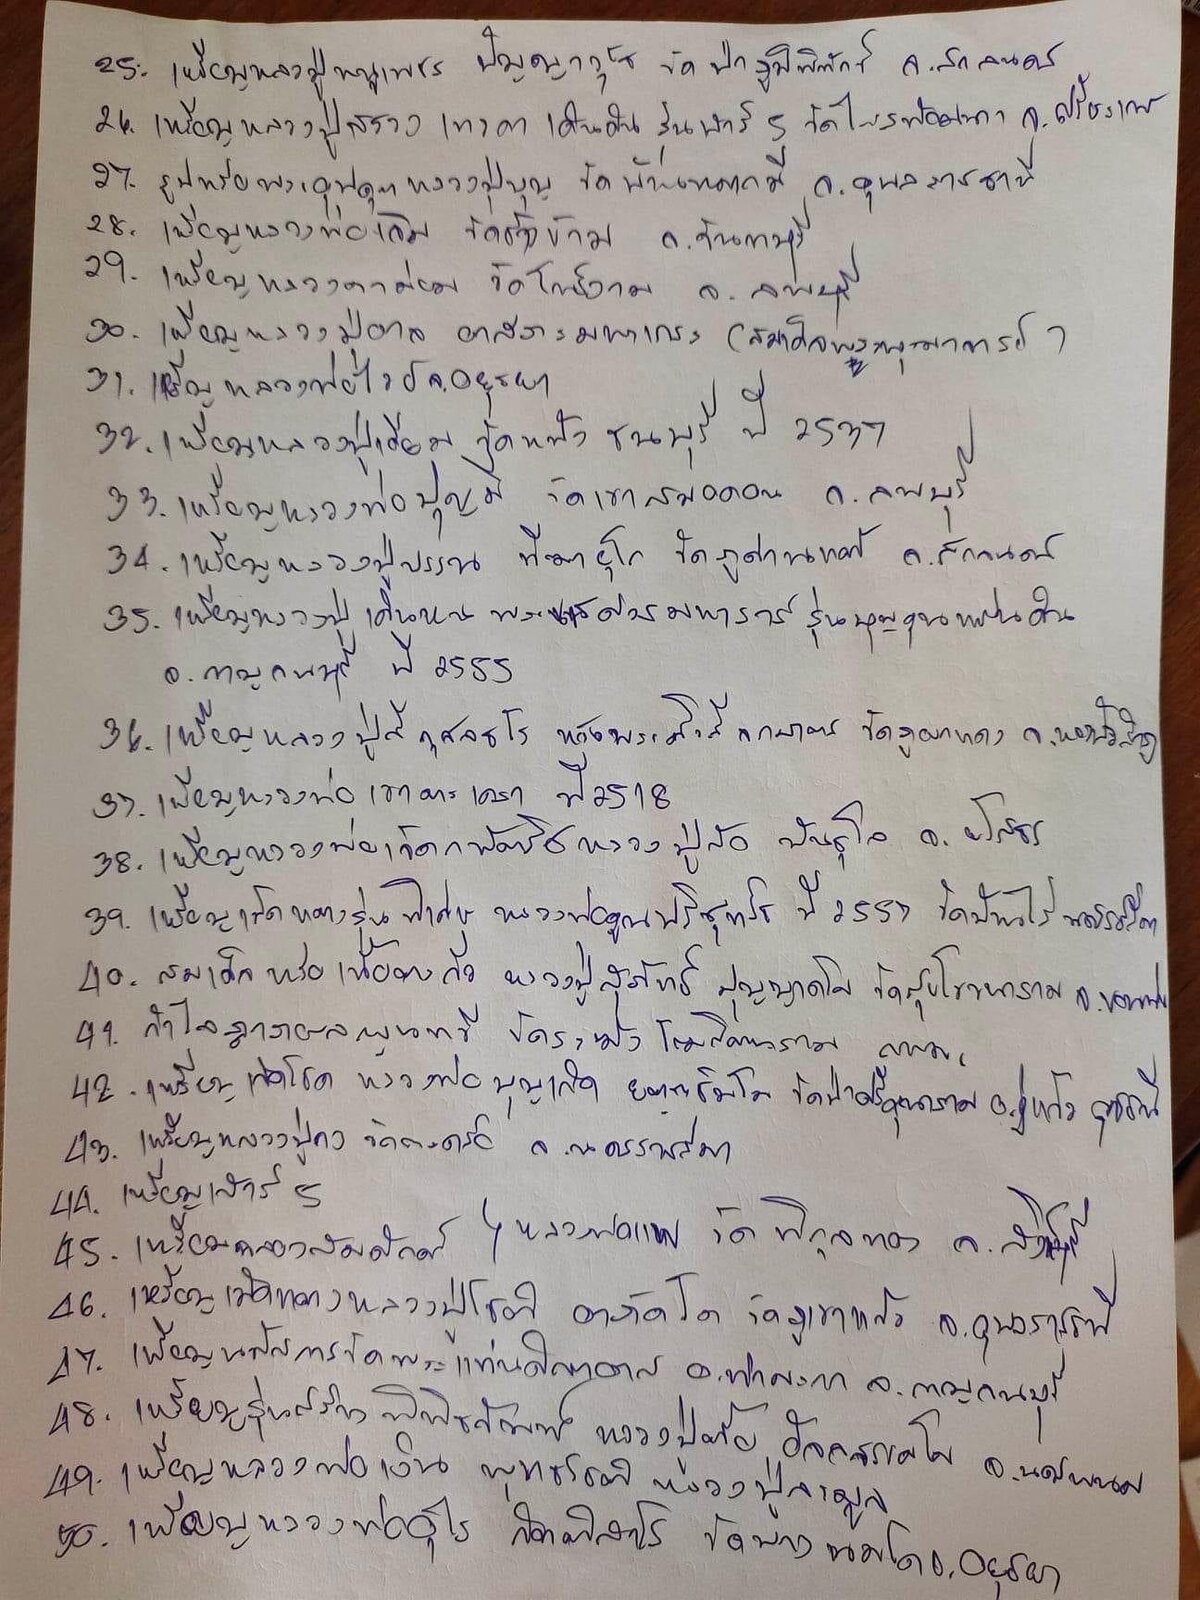 25. เหรียญหลวงปู่หนูเพชร ปัญญาวุโธ วัดป่าภูมิพิทักษ์ จ.สกลนคร
26. เหรียญหลวงปู่สรวง เทวดา เดินดิน รุ่นเสาร์ 5 วัดไพรพัฒนา จ.ศรีษะเกษ
27. รูปหล่อพระอุปคุต หลวงปู่บุญ วัด จ.อุบลราชธานี
28. เหรียญหลวงพ่อเดิม วัดช้างข้าม จ.จันทบุรี
29. เหรียญหลวงตาม่อม วัดโพธิ์งาม จ.ลพบุรี
30. เหรียญหลวงปู่อาจ อาสภะมหาเถระ (สมเด็จพระพุฒาจารย์)
31. เหรียญหลวงพ่อ จ.อยุธยา
32. เหรียญหลวงปู่เอี่ยม วัดหนัง ธนบุรี ปี 2537
33. เหรียญหลวงพ่อบุญมี วัดเขาสมอคอน จ.ลพบุรี
34. เหรียญหลวงปู่บรรณ ฑีฆายุโก วัด จ.สกลนคร
35. เหรียญหลวงปู่เดินหน พระนเรศวรมหาราช รุ่นบุญคุณแผ่นดิน
จ.กาญจนบุรี ปี 2555
36. เหรียญหลวงปู่ลี กุสลธโร หลังพระเจดีย์ วัดภูผาแดง จ.
37. เหรียญหลวงพ่อเขาตะเครา ปี 2518
38. เหรียญหลวงพ่อเจ็ดกษัตริย์ หลวงปู่สอ พันธุโล จ.ยโสธร
39. เหรียญเม็ดแตงรุ่นพิเศษ หลวงพ่อคูณปริสุทโธ ปี 2557 วัดบ้านไร่ นครราชสีมา
40. สมเด็จหล่อเนื้อตะกั่ว หลวงปู่ วัด จ.ขอนแก่น
41. กำไล วัดระฆังโฆสิตาราม กทม.
42. เหรียญเม็ดโชค หลวงพ่อบุญเกิด วัด อ.กู่แก้ว อุดรธานี
43. เหรียญหลวงปู่คง วัดตะคร้อ จ.นครราชสีมา
44. เหรียญเสาร์ 5
45. เหรียญฉลองสมณศักดิ์ } หลวงพ่อแพ วัดพิกุลทอง จ.สิงห์บุรี
46. เหรียญเม็ดแตงหลวงปู่โชติ อาภัคโค วัดภูเขาแก้ว จ.อุบลราชธานี
47. เหรียญนมัสการวัดพระแท่นดงรัง อ.ท่ามะกา จ.กาญจนบุรี
48. เหรียญรุ่นสร้างพิพิธภัณฑ์ หลวงปู่ จ.นครพนม
49. เหรียญหลวงพ่อเงิน พุทธโชติ หลวงปู่
50. เหรียญหลวงพ่ออุไร กิตติสาโร วัดบางนมโค จ.อยุธยา